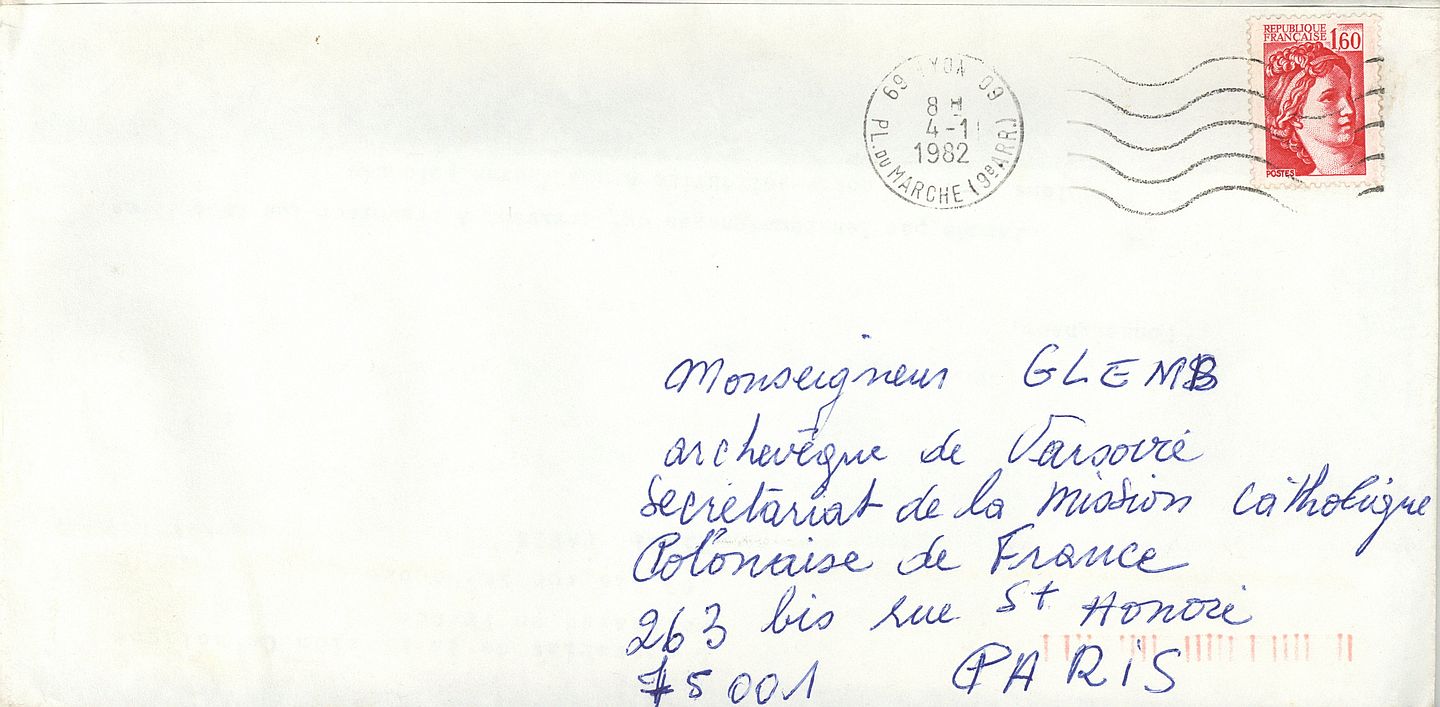 REPUBLIQUE
FRANÇAISE 1,60
POSTES
69 LYON 09
8 H
4-1
1982
PL. DU MARCHE (9e ARR)
Monseigneur GLEMB
archevêque de Varsovie
Secrétariat de la Mission Catholique
Polonaise de France
263 bis rue St Honoré
75001 PARIS